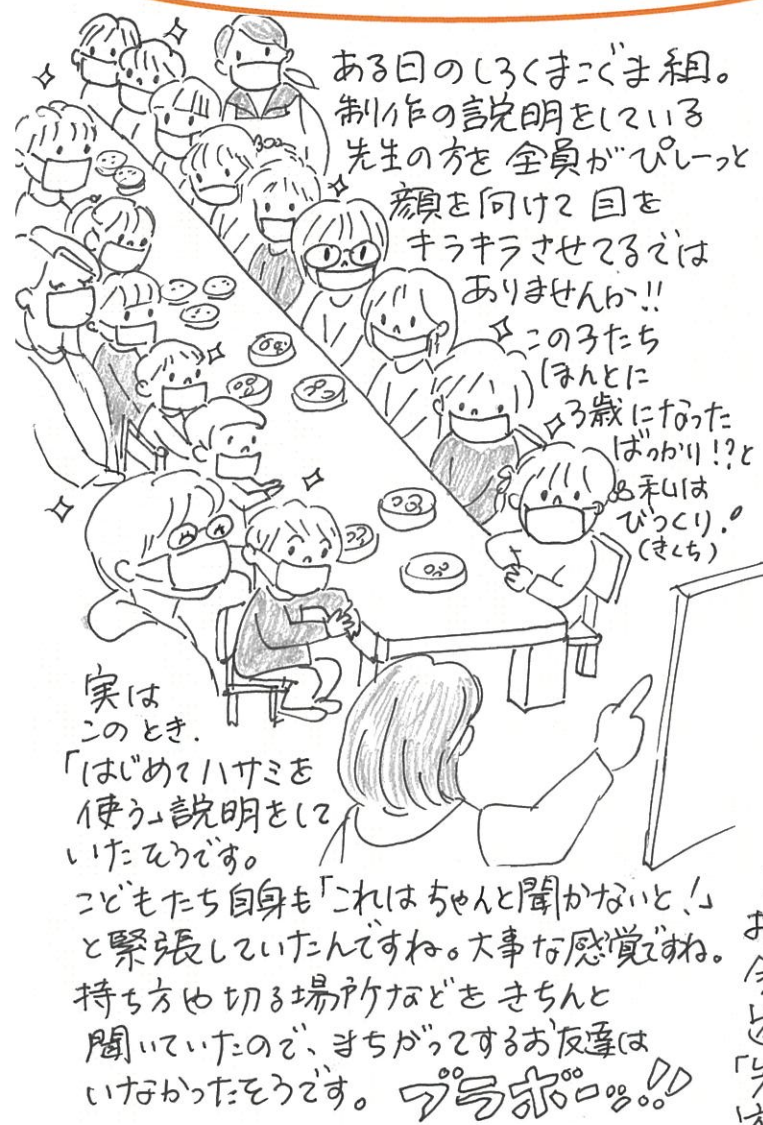 ある日のしろくまこぐま組。
制作の説明をしている
先生の方を 全員がぴしーっと
顔を向けて 目を
キラキラさせてるでは
ありませんか!!
この子たち
ほんとに
3歳になった
ばっかり!?と
私は
びっくり!
(きくち)
実は
このとき、
「はじめてハサミを
使う」説明をして
いたそうです。
こどもたち自身も「これは ちゃんと聞かないと!」
と緊張していたんですね。大事な感覚ですね。
持ち方や切る場所などを きちんと
聞いていたので、まちがってするお友達は
いなかったそうです。 ブラボーッ!!